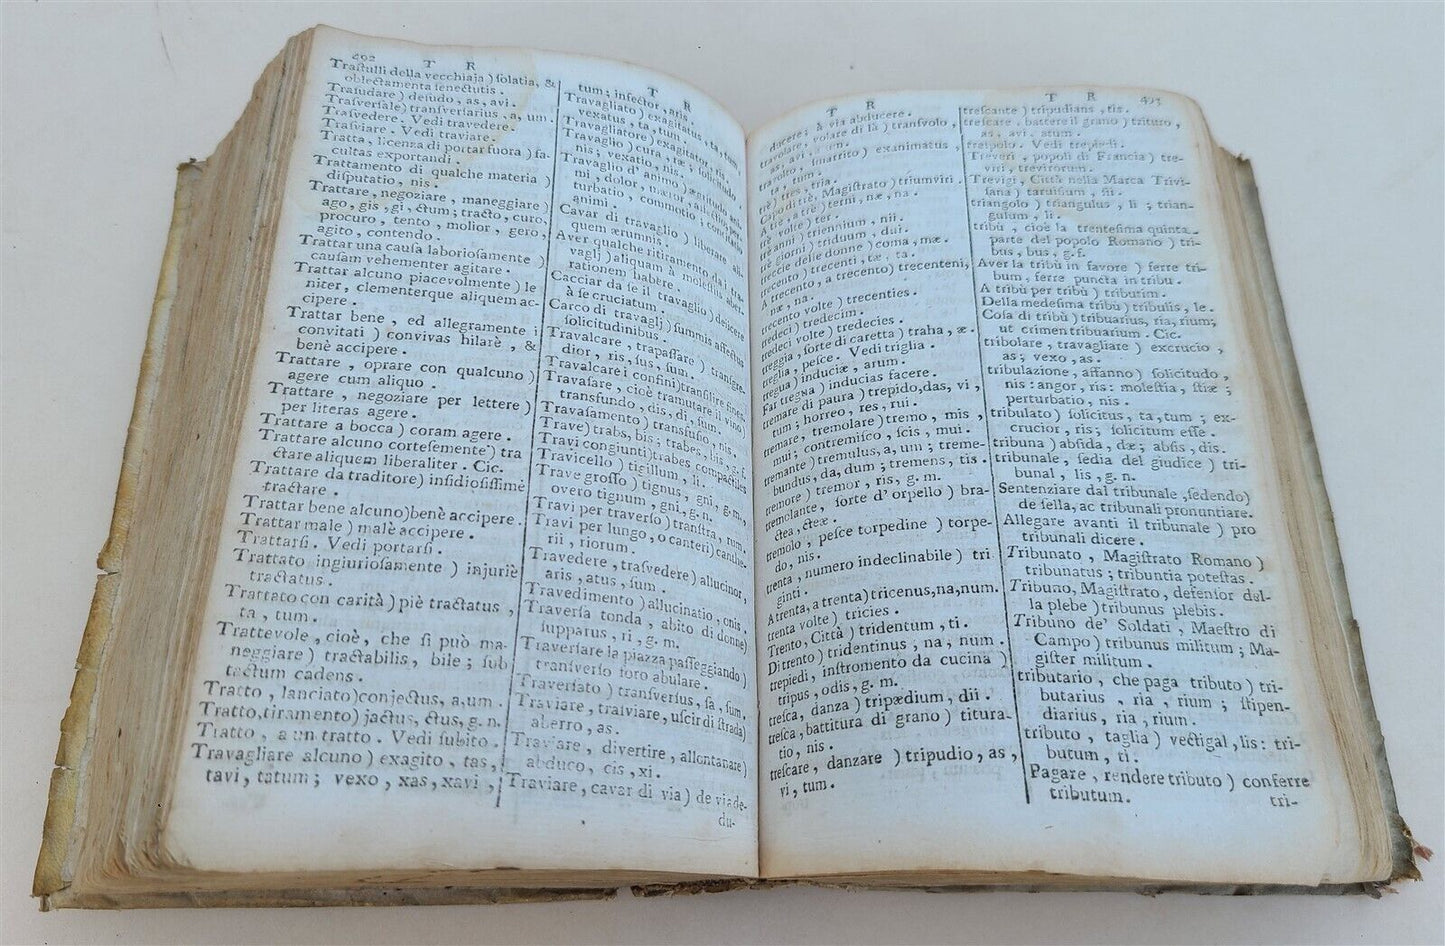 492 T R
Traſtulli della vecchiaja) ſolatia, &
oblectamenta ſenectutis.
Traſudare) deſudo, as, avi.
Traſverſale) tranſverſarius, a, um
Traſvedere. Vedi travedere.
Traſviare. Vedi traviare.
ratta, licenza di portar fuora) fa-
cultas exportandi.
Trattamento di qualche materia)
diſputatio, nis.
Trattare, negoziare, maneggiare)
ago, gis, gi, ctum; tracto, curo,
procuro, tento, molior, gero,
agito, contendo.
Trattar una cauſa laborioſamente)
cauſam vehementer agitare.
Trattar alcuno piacevolmente) le
niter, clementerque aliquem ac-
cipere.
Trattar bene, ed allegramente i
convitati) convivas hilarè, &
benè accipere.
Trattare, oprare con qualcuno)
agere cum aliquo.
Trattare, negoziare per lettere)
per literas agere.
Trattare a bocca) coram agere.
Trattare alcuno corteſemente) tra
ctare aliquem liberaliter. Cic.
Trattare da traditore) inſidioſiſſimè
tractare.
Trattar bene alcuno) benè accipere.
Trattar male) malè accipere.
Trattarſi. Vedi portarſi.
Trattato ingiurioſamente) injuriè
tractatus.
Trattato con carità) piè tractatus,
ta, tum.
Trattevole, cioè, che ſi può ma-
neggiare) tractabilis, bile; ſub
tactum cadens.
Tratto, lanciato) conjectus, a, um.
Tratto, tiramento) jactus, ctus, g. n.
Tratto, a un tratto. Vedi ſubito.
Travagliare alcuno) exagito, tas,
tavi, tatum; vexo, xas, xavi,
T R
tum; inſector, aris.
Travagliato) exagitatus, ta, tum,
vexatus, ta, tum.
Travagliatore) exagitator, ris.
Travaglio) cura, ræ; ſolicitudo
nis; vexatio, nis.
Travaglio d' animo) ægritudo ani-
mi, dolor, mæror,
turbatio, commotio;
animi.
Cavar di travaglio) liberare ali-
quem ærumnis.
Aver qualche ritiramento da i tra-
vaglj) aliquam à moleſtiis aber-
rationem habere.
Cacciar da ſe il travaglio) dejicere
à ſe cruciatum.
Carco di travaglj) ſummis affectus
ſolicitudinibus.
Travalcare, trapaſſare) tranſgre-
dior, ris, ſus, ſum.
Travalcare i confini) tranſilire fines.
Travaſare, cioè tramutare il vino)
transfundo, dis, di, ſum.
Travaſamento) transfuſio, nis.
Trave) trabs, bis; trabes, bis, g. f.
Travi congiunti) trabes compactiles
Travicello) tigillum, li.
Trave groſſo) tignus, gni, g. m.,
overo tignum, gni, g. n.
Travi per traverſo) tranſtra, rum.
Travi per lungo, o canteri) canthe-
rii, riorum.
Travedere, traſvedere) allucinor,
aris, atus, ſum.
Travedimento) allucinatio, onis.
Traverſa tonda, abito di donne)
ſupparus, ri, g. m.
Traverſare la piazza paſſeggiando)
tranſverſo foro abulare.
Traverſato) tranſverſus, ſa, ſum.
Traviare, traſviare, uſcir di ſtrada)
aberro, as.
Traviare, divertire, allontanare)
abduco, cis, xi.
Traviare, cavar di via) de via de-
du-
T R
ducere; à via abducere.
travolare, volare di là) tranſvolo,
as, avi, um.
ſmarrito) exanimatus,
ta, tum.
trè) tres, tria.
Capo di trè, Magiſtrato) triumviri.
A trè, a trè) terni, næ, na.
trè volte) ter.
trè anni) triennium, nii.
trè giorni) triduum, dui.
treccie delle donne) coma, mæ.
trecento) trecenti, tæ, ta.
A trecento, a trecento) trecenteni,
næ, na.
trecento volte) trecenties.
tredeci) tredecim.
tredeci volte) tredecies.
treggia, ſorte di caretta) traha, æ.
treglia, peſce. Vedi triglia.
tregua) induciæ, arum.
Far tregua) inducias facere.
tremare di paura) trepido, das, vi,
tum; horreo, res, rui.
tremare, tremolare) tremo, mis,
mui; contremiſco, ſcis, mui.
tremante) tremulus, a, um; treme-
bundus, da, dum; tremens, tis.
tremore) tremor, ris, g. m.
tremolante, ſorte d' orpello) bra-
ctea, cteæ.
tremolo, peſce torpedine) torpe-
do, nis.
trenta, numero indeclinabile) tri
ginti.
A trenta, a trenta) tricenus, na, num.
trenta volte) tricies.
Trento, Città) tridentum, ti.
Di trento) tridentinus, na, num.
trepiedi, inſtromento da cucina)
tripus, odis, g. m.
treſca, danza) tripædium, dii.
treſca, battitura di grano) titura-
tio, nis.
treſcare, danzare) tripudio, as,
vi, tum.
T R 493
treſcante) tripudians, tis.
treſcare, battere il grano) trituro,
as, avi, atum.
treſpolo. Vedi trepiedi.
Treveri, popoli di Francia) tre-
viri, trevirorum.
Trevigi, Città nella Marca Trivi-
ſana) tarviſium, ſii.
triangolo) triangulus, li; trian-
gulum, li.
tribù, cioè la trenteſima quinta
parte del popolo Romano) tri-
bus, bus, g. f.
Aver la tribù in favore) ferre tri-
bum, ferre puncta in tribu.
A tribù per tribù) tributim.
Della medeſima tribù) tribulis, le.
Coſa di tribù) tribuarius, ria, rium;
ut crimen tribuarium. Cic.
tribolare, travagliare) excrucio,
as; vexo, as.
tribulazione, affanno) ſolicitudo,
nis: angor, ris: moleſtia, ſtiæ;
perturbatio, nis.
tribulato) ſolicitus, ta, tum; ex-
crucior, ris; ſolicitum eſſe.
tribuna) abſida, dæ; abſis, dis.
tribunale, ſedia del giudice) tri-
bunal, lis, g. n.
Sentenziare dal tribunale, ſedendo)
de ſella, ac tribunali pronuntiare.
Allegare avanti il tribunale) pro
tribunali dicere.
Tribunato, Magiſtrato Romano)
tribunatus; tribuntia poteſtas.
Tribuno, Magiſtrato, defenſor del-
la plebe) tribunus plebis.
Tribuno de' Soldati, Maeſtro di
Campo) tribunus militum; Ma-
giſter militum.
tributario, che paga tributo) tri-
butarius, ria, rium; ſtipen-
diarius, ria, rium.
tributo, taglia) vectigal, lis: tri-
butum, ti.
Pagare, rendere tributo) conferre
tributum.
tri-